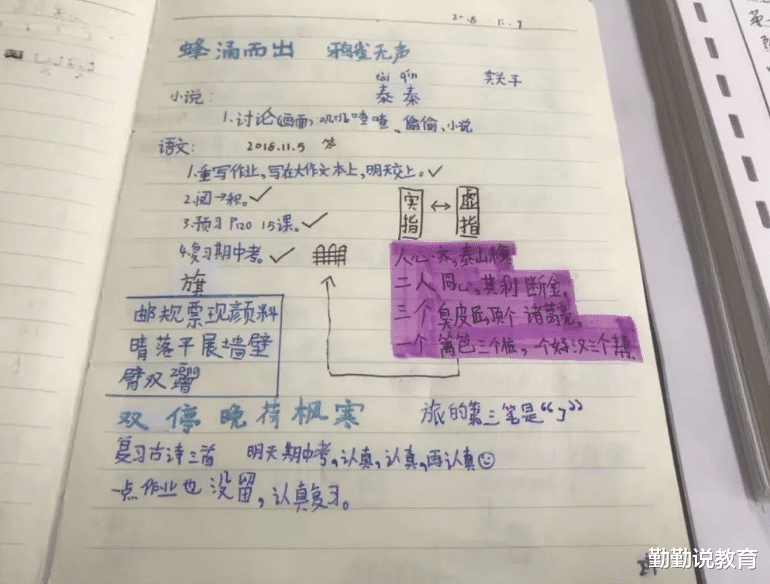 2018 11.7
蜂涌而出 鸦雀无声
tài qín
泰 秦
小说:
1.讨论(画面),叽叽喳喳、偷偷、小说
语文: 2018.11.5
1.重写作业,写在大作文本上,明天交上。✓
2.阅→积。✓
3.预习P120 15课。✓
4.复习期中考。✓
实指 ↔ 虚指
旗
人心齐,泰山移
二人同心,其利断金。
三个臭皮匠,顶个诸葛亮。
一个篱笆三个桩,一个好汉三个帮。
邮规票现颜料
晴落干展墙壁
臂双zēng增
双停晚荷枫寒
旅的第三笔是“㇆”
复习古诗三首 明天期中考,认真,认真,再认真☺
一点作业也没留,认真复习。
勤勤说教育